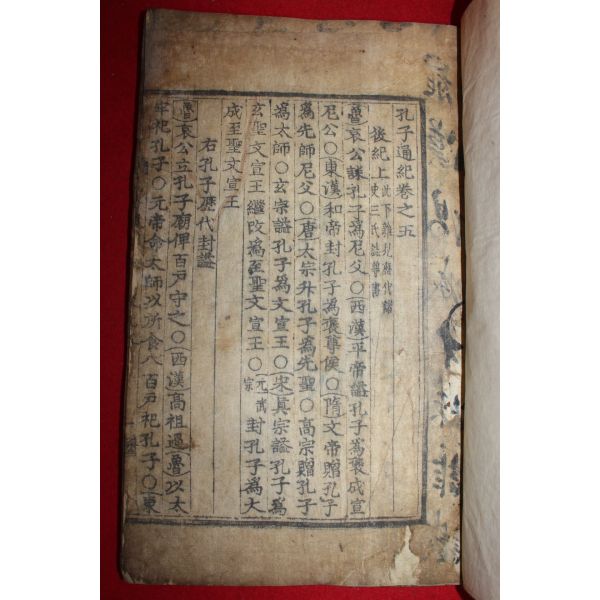 孔子通紀卷之五
後紀上 此下雜見歷代 史三氏誌等書
魯哀公誄孔子爲尼父○西漢平帝諡孔子爲褒成宣
尼公○東漢和帝封孔子爲褒尊侯○隋文帝贈孔子
爲先師尼父○唐太宗升孔子爲先聖○高宗贈孔子
爲太師○玄宗諡孔子爲文宣王○宋眞宗諡孔子爲
玄聖文宣王繼改爲至聖文宣王○元武宗封孔子爲大
成至聖文宣王
右孔子歷代封諡
魯哀公立孔子廟俾百戶守之○西漢高祖過魯以太
牢祀孔子○元帝命太師以所食八百戶祀孔子○東